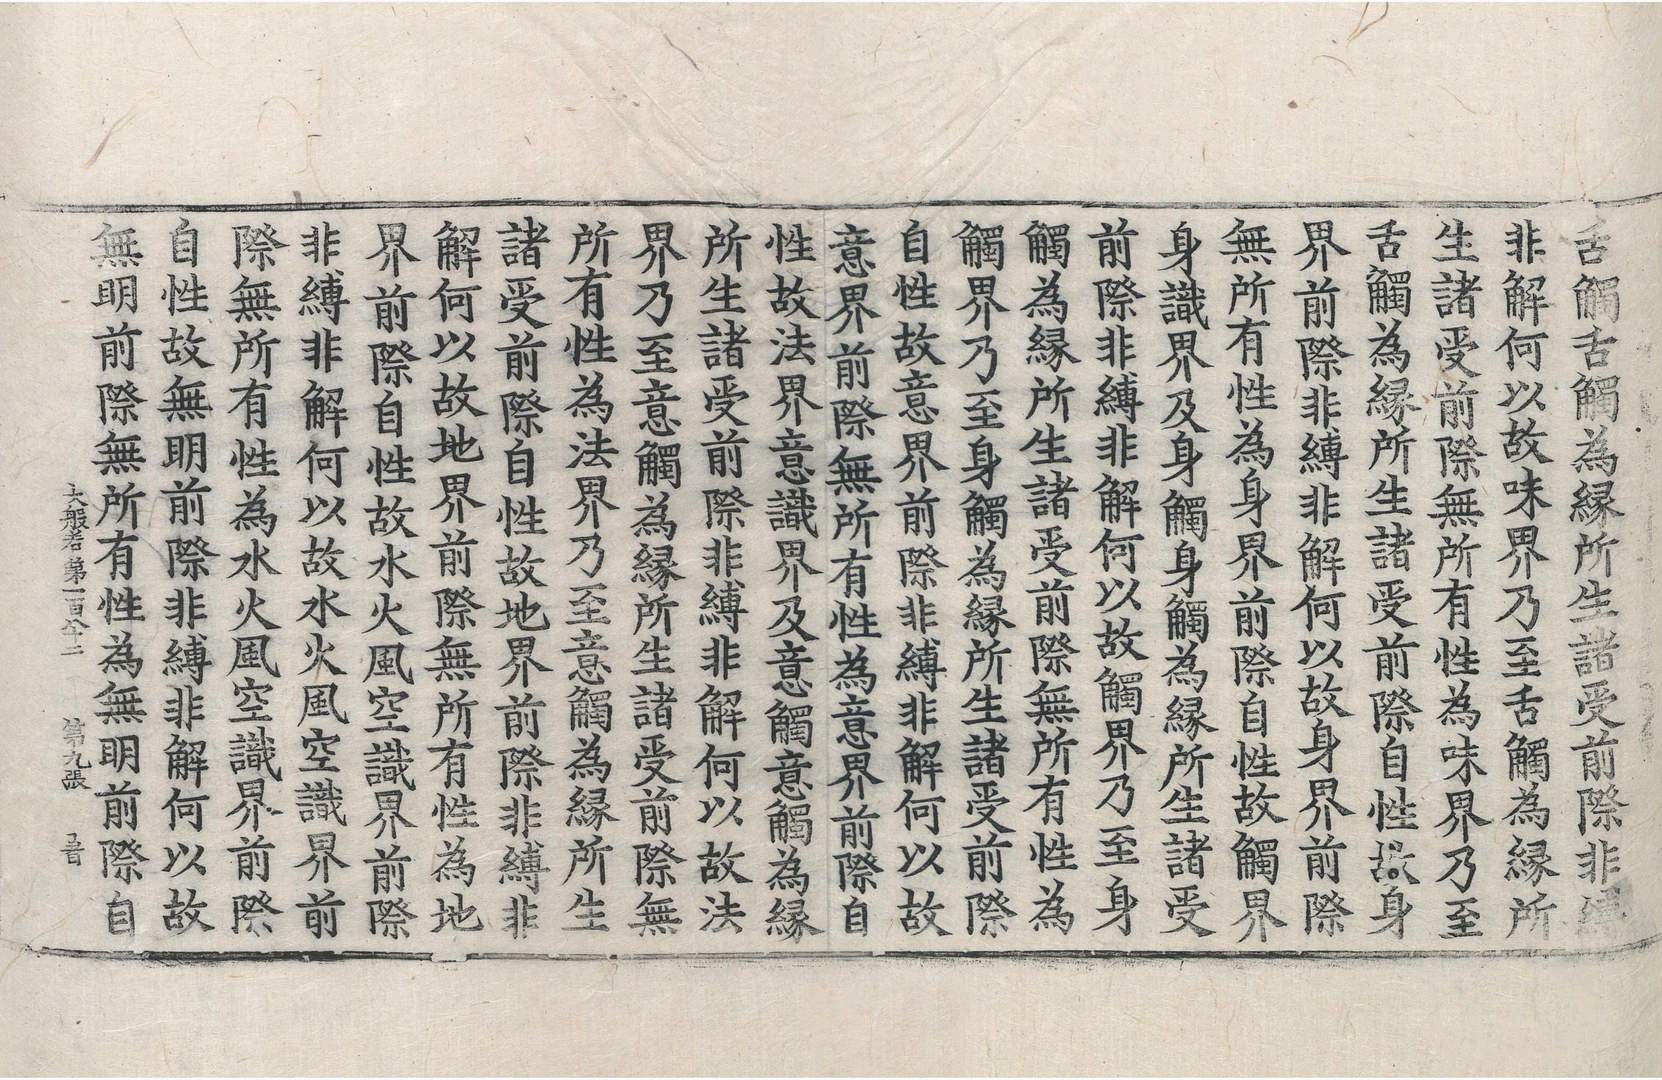 舌觸舌觸為縁所生諸受前際非縛
非解何以故味界乃至舌觸為縁所
生諸受前際無所有性為味界乃至
舌觸為縁所生諸受前際自性故身
界前際非縛非解何以故身界前際
無所有性為身界前際自性故觸界
身識界及身觸身觸為縁所生諸受
前際非縛非解何以故觸界乃至身
觸為縁所生諸受前際無所有性為
觸界乃至身觸為縁所生諸受前際
自性故意界前際非縛非解何以故
意界前際無所有性為意界前際自
性故法界意識界及意觸意觸為縁
所生諸受前際非縛非解何以故法
界乃至意觸為縁所生諸受前際無
所有性為法界乃至意觸為縁所生
諸受前際自性故地界前際非縛非
解何以故地界前際無所有性為地
界前際自性故水火風空識界前際
非縛非解何以故水火風空識界前
際無所有性為水火風空識界前際
自性故無明前際非縛非解何以故
無明前際無所有性為無明前際自
大般若第一百八十二 第九張